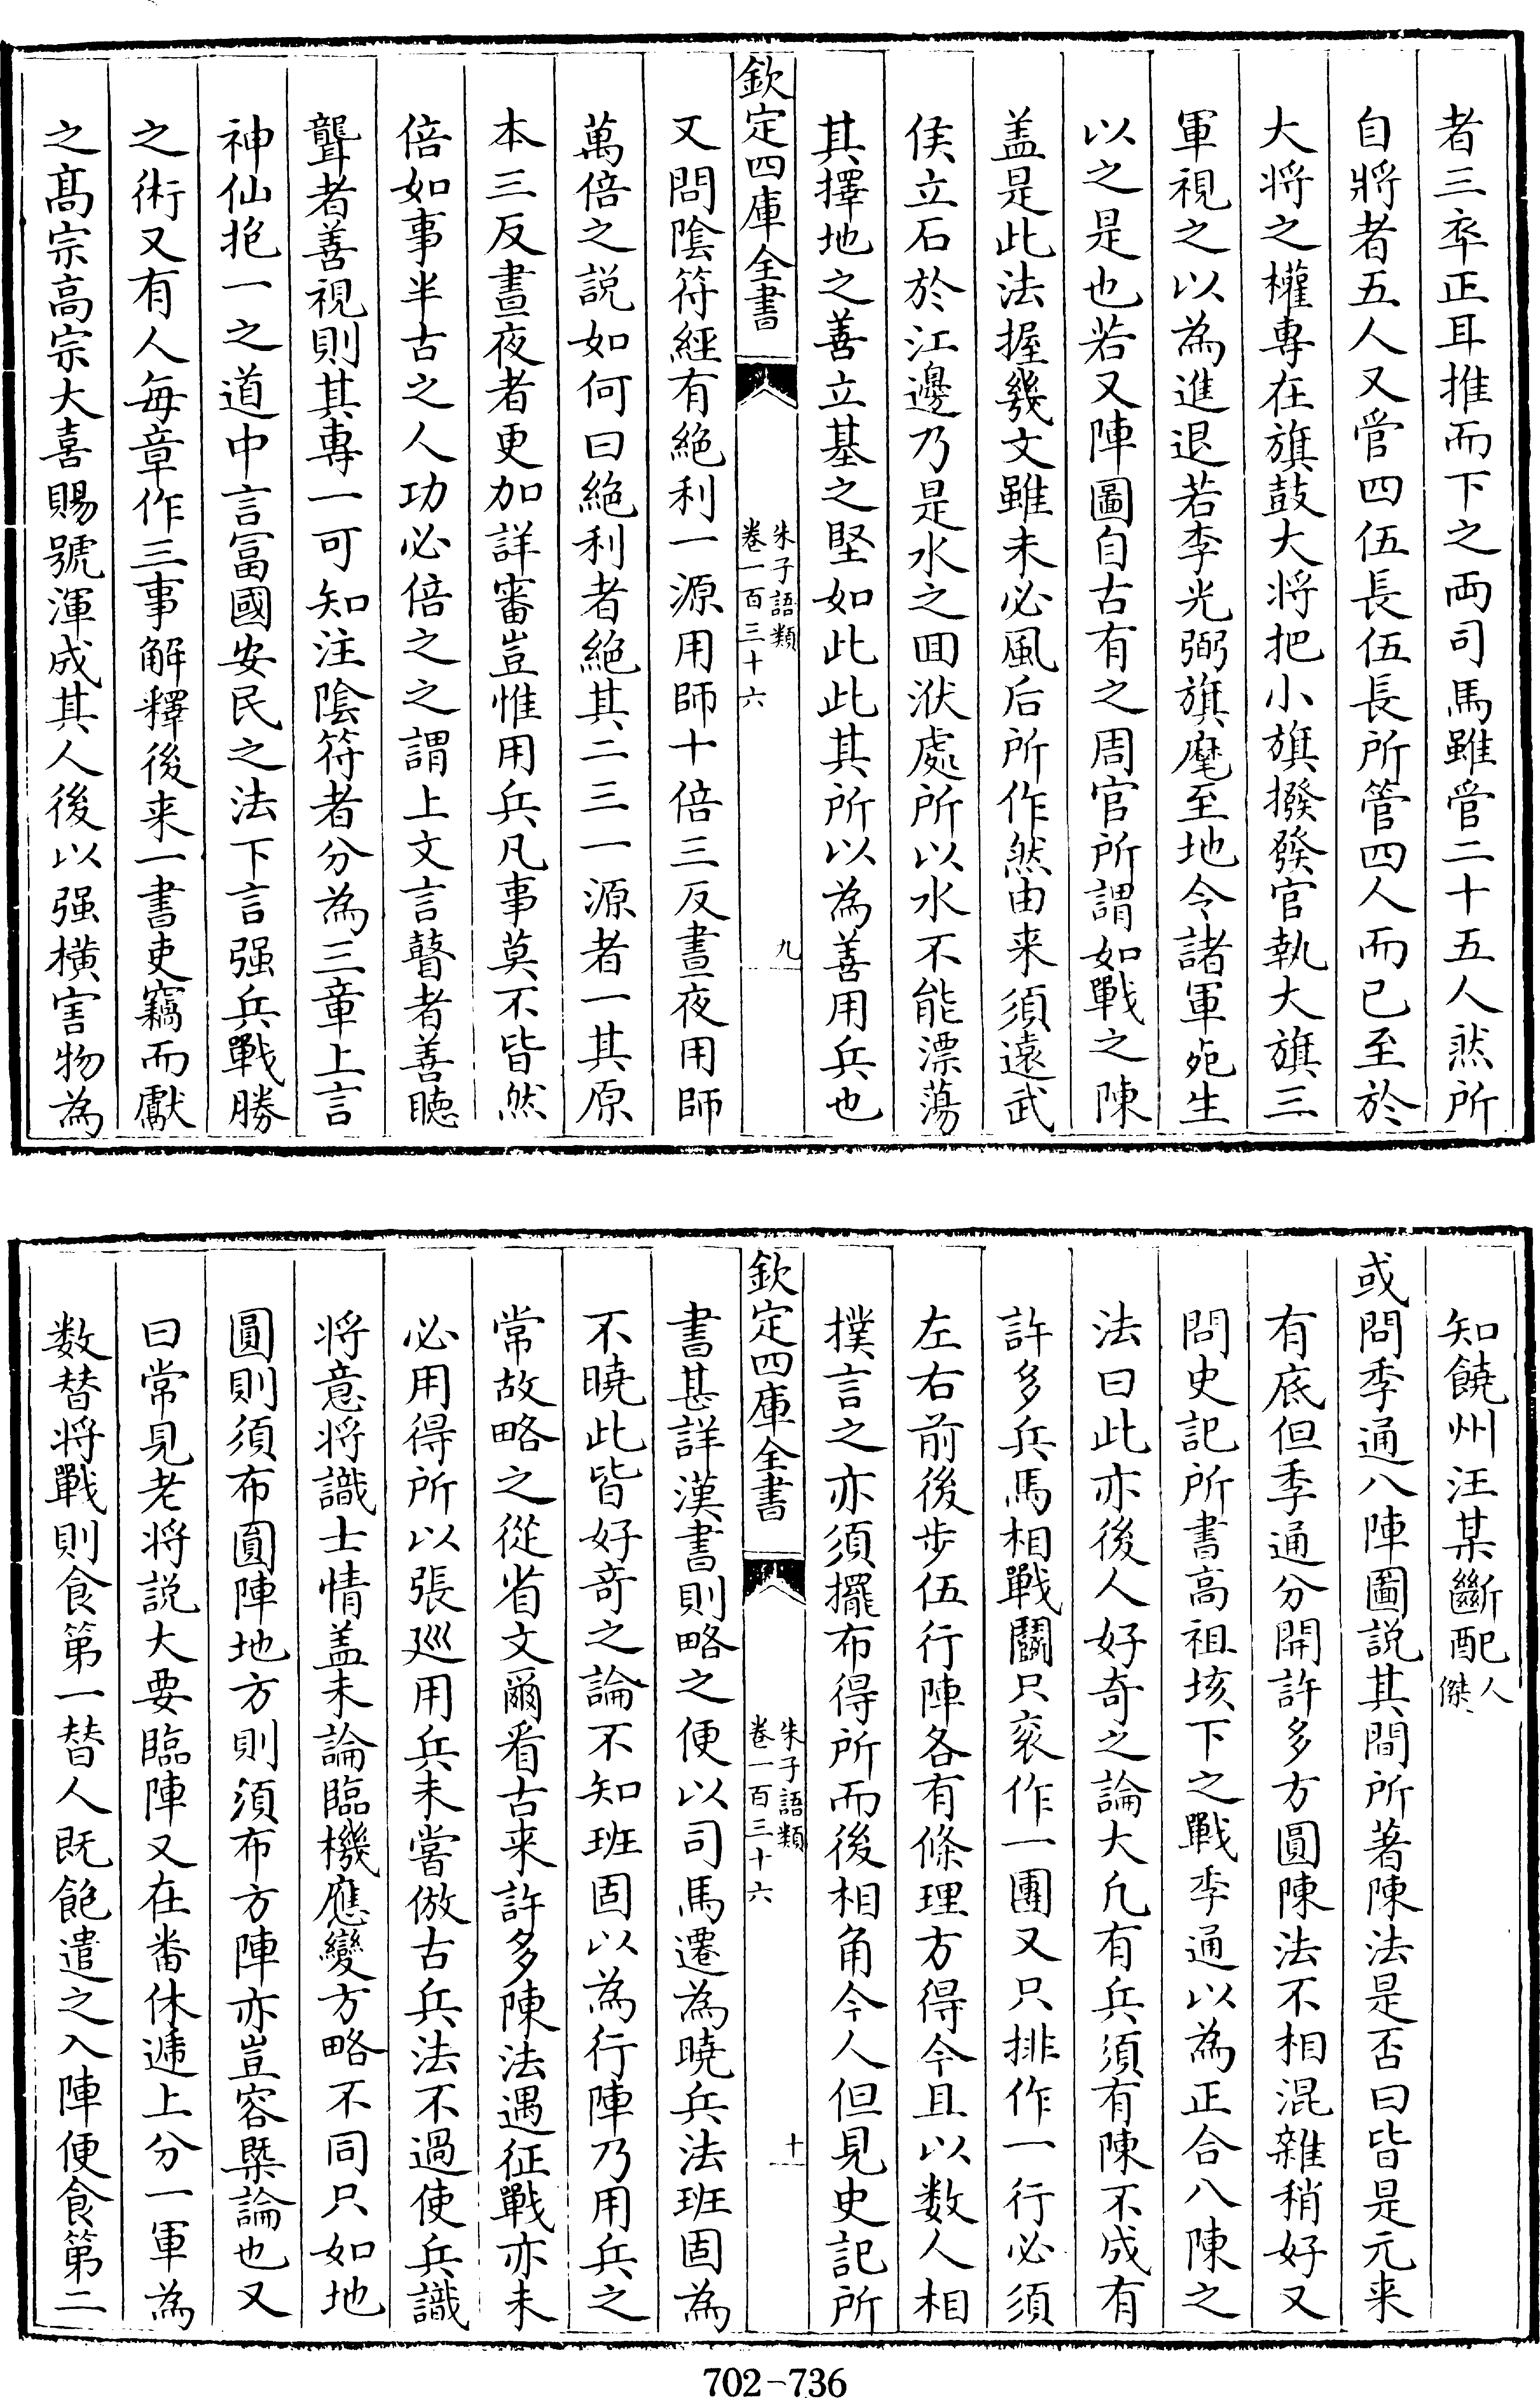 者三卒正耳推而下之兩司馬雖管二十五人然所
自將者五人又管四伍長伍長所管四人而已至於
大將之權專在旗鼓大將把小旗撥發官執大旗三
軍視之以為進退若李光弼旗麾至地令諸軍死生
以之是也若又陣圖自古有之周官所謂如戰之陳
盖是此法握幾文雖未必風后所作然由来須遠武
侯立石於江邊乃是水之囬洑處所以水不能漂蕩
其擇地之善立基之堅如此此其所以為善用兵也
欽定四庫全書
朱子語類
卷一百三十六
九
又問陰符經有絶利一源用師十倍三反晝夜用師
萬倍之説如何曰絶利者絶其二三一源者一其原
本三反晝夜者更加詳審豈惟用兵凡事莫不皆然
倍如事半古之人功必倍之之謂上文言瞽者善聽
聾者善視則其專一可知注陰符者分為三章上言
神仙抱一之道中言富國安民之法下言强兵戰勝
之術又有人每章作三事解釋後来一書吏竊而獻
之髙宗高宗大喜賜號渾成其人後以强横害物為
知饒州汪某斷配人傑
或問季通八陣圖説其間所著陳法是否曰皆是元来
有底但季通分開許多方圓陳法不相混雜稍好又
問史記所書高祖垓下之戰季通以為正合八陳之
法曰此亦後人好奇之論大凡有兵須有陳不成有
許多兵馬相戰鬭只衮作一團又只排作一行必須
左右前後步伍行陣各有條理方得今且以数人相
撲言之亦須擺布得所而後相角今人但見史記所
欽定四庫全書
朱子語類
卷一百三十六
十
書甚詳漢書則略之便以司馬遷為曉兵法班固為
不曉此皆好奇之論不知班固以為行陣乃用兵之
常故略之從省文爾看古来許多陳法遇征戰亦未
必用得所以張廵用兵未嘗倣古兵法不過使兵識
將意將識士情盖未論臨機應變方略不同只如地
圓則須布圓陣地方則須布方陣亦豈容槩論也又
曰常見老将説大要臨陣又在番休遞上分一軍為
数替将戰則食第一替人既飽遣之入陣便食第二
702-736